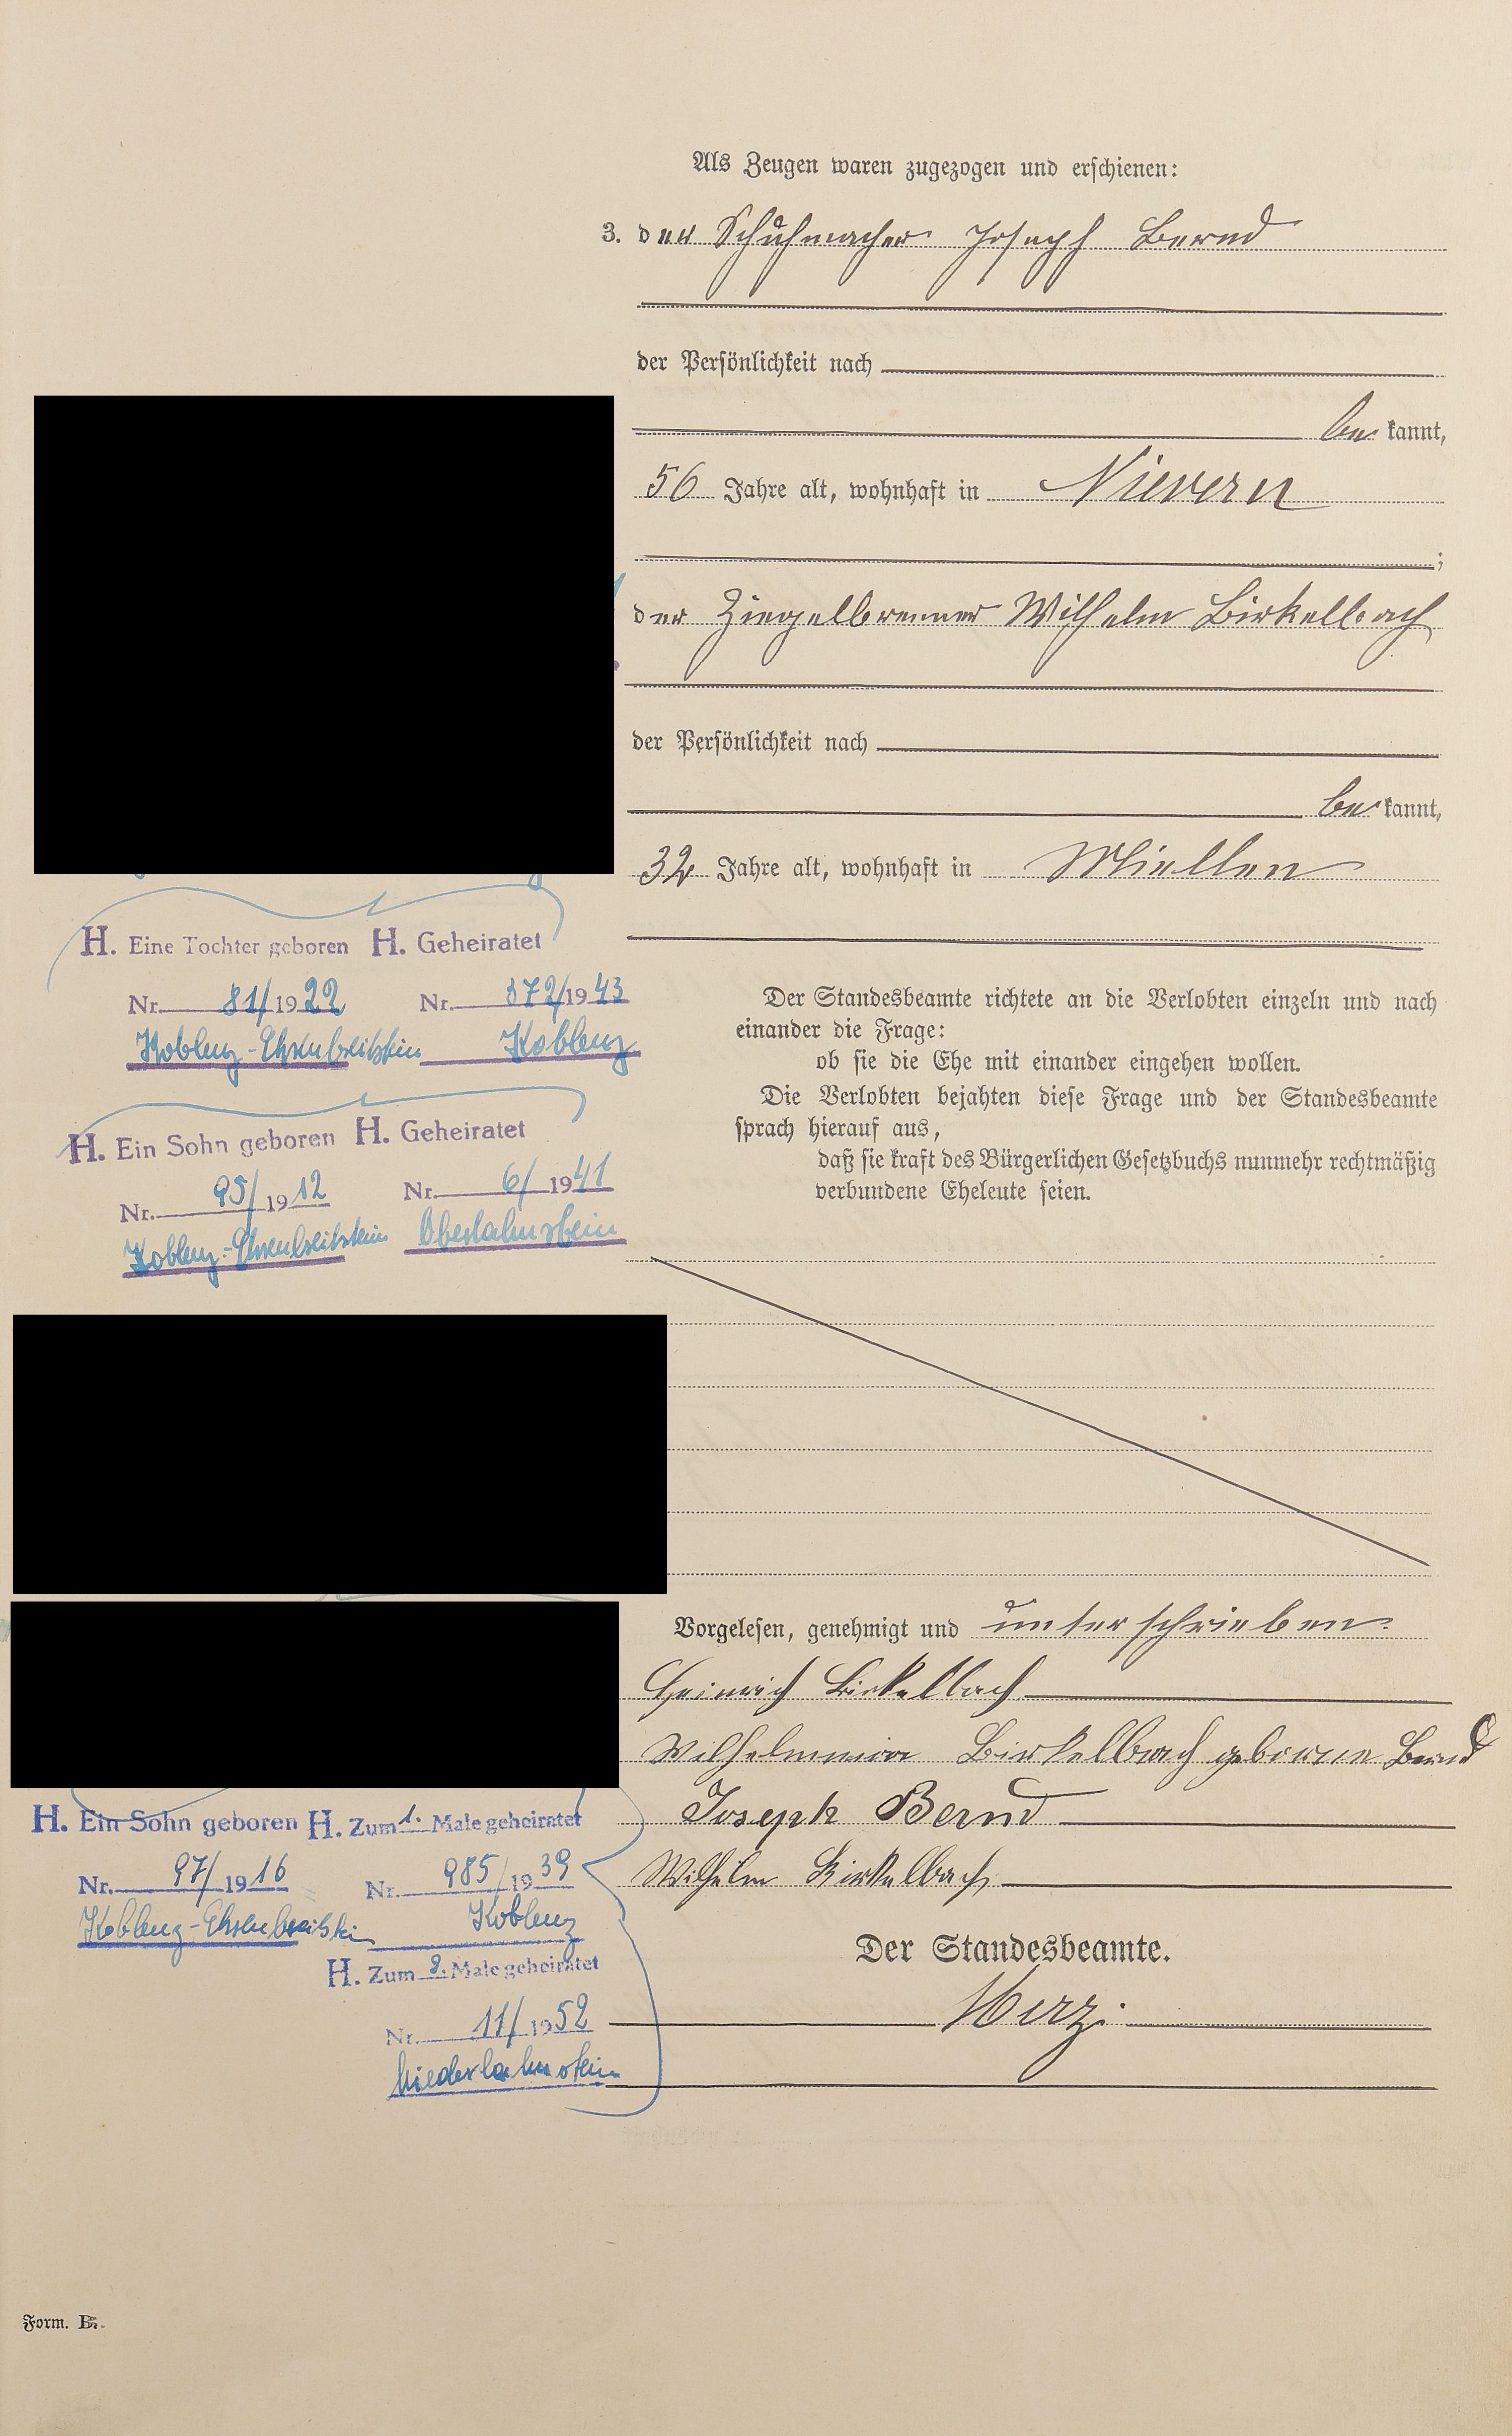 Als Zeugen waren zugezogen und erschienen:
3. der Schuhmacher Joseph Bernd
der Persönlichkeit nach
be kannt,
56 Jahre alt, wohnhaft in Nievern
;
der Ziegelbrenner Wilhelm Birkelbach
der Persönlichkeit nach
be kannt,
32 Jahre alt, wohnhaft in Miellen
Der Standesbeamte richtete an die Verlobten einzeln und nach
einander die Frage:
ob sie die Ehe mit einander eingehen wollen.
Die Verlobten bejahten diese Frage und der Standesbeamte
sprach hierauf aus,
daß sie kraft des Bürgerlichen Gesetzbuchs nunmehr rechtmäßig
verbundene Eheleute seien.
Vorgelesen, genehmigt und unterschrieben.
Heinrich Birkelbach
Wilhelmina Birkelbach geborene Bernd
Joseph Bernd
Wilhelm Birkelbach
Der Standesbeamte.
H. Eine Tochter geboren H. Geheiratet
Nr. 81/1922 Nr. 372/1943
Koblenz-Ehrenbreitstein Koblenz
H. Ein Sohn geboren H. Geheiratet
Nr. 95/1912 Nr. 6/1941
Koblenz-Ehrenbreitstein Oberlahnstein
H. Ein Sohn geboren H. Zum 1. Male geheiratet
Nr. 97/1916 Nr. 985/1939
Koblenz-Ehrenbreitstein Koblenz
H. Zum 2. Male geheiratet
Nr. 11/1952
Niederlahnstein
Form. B.